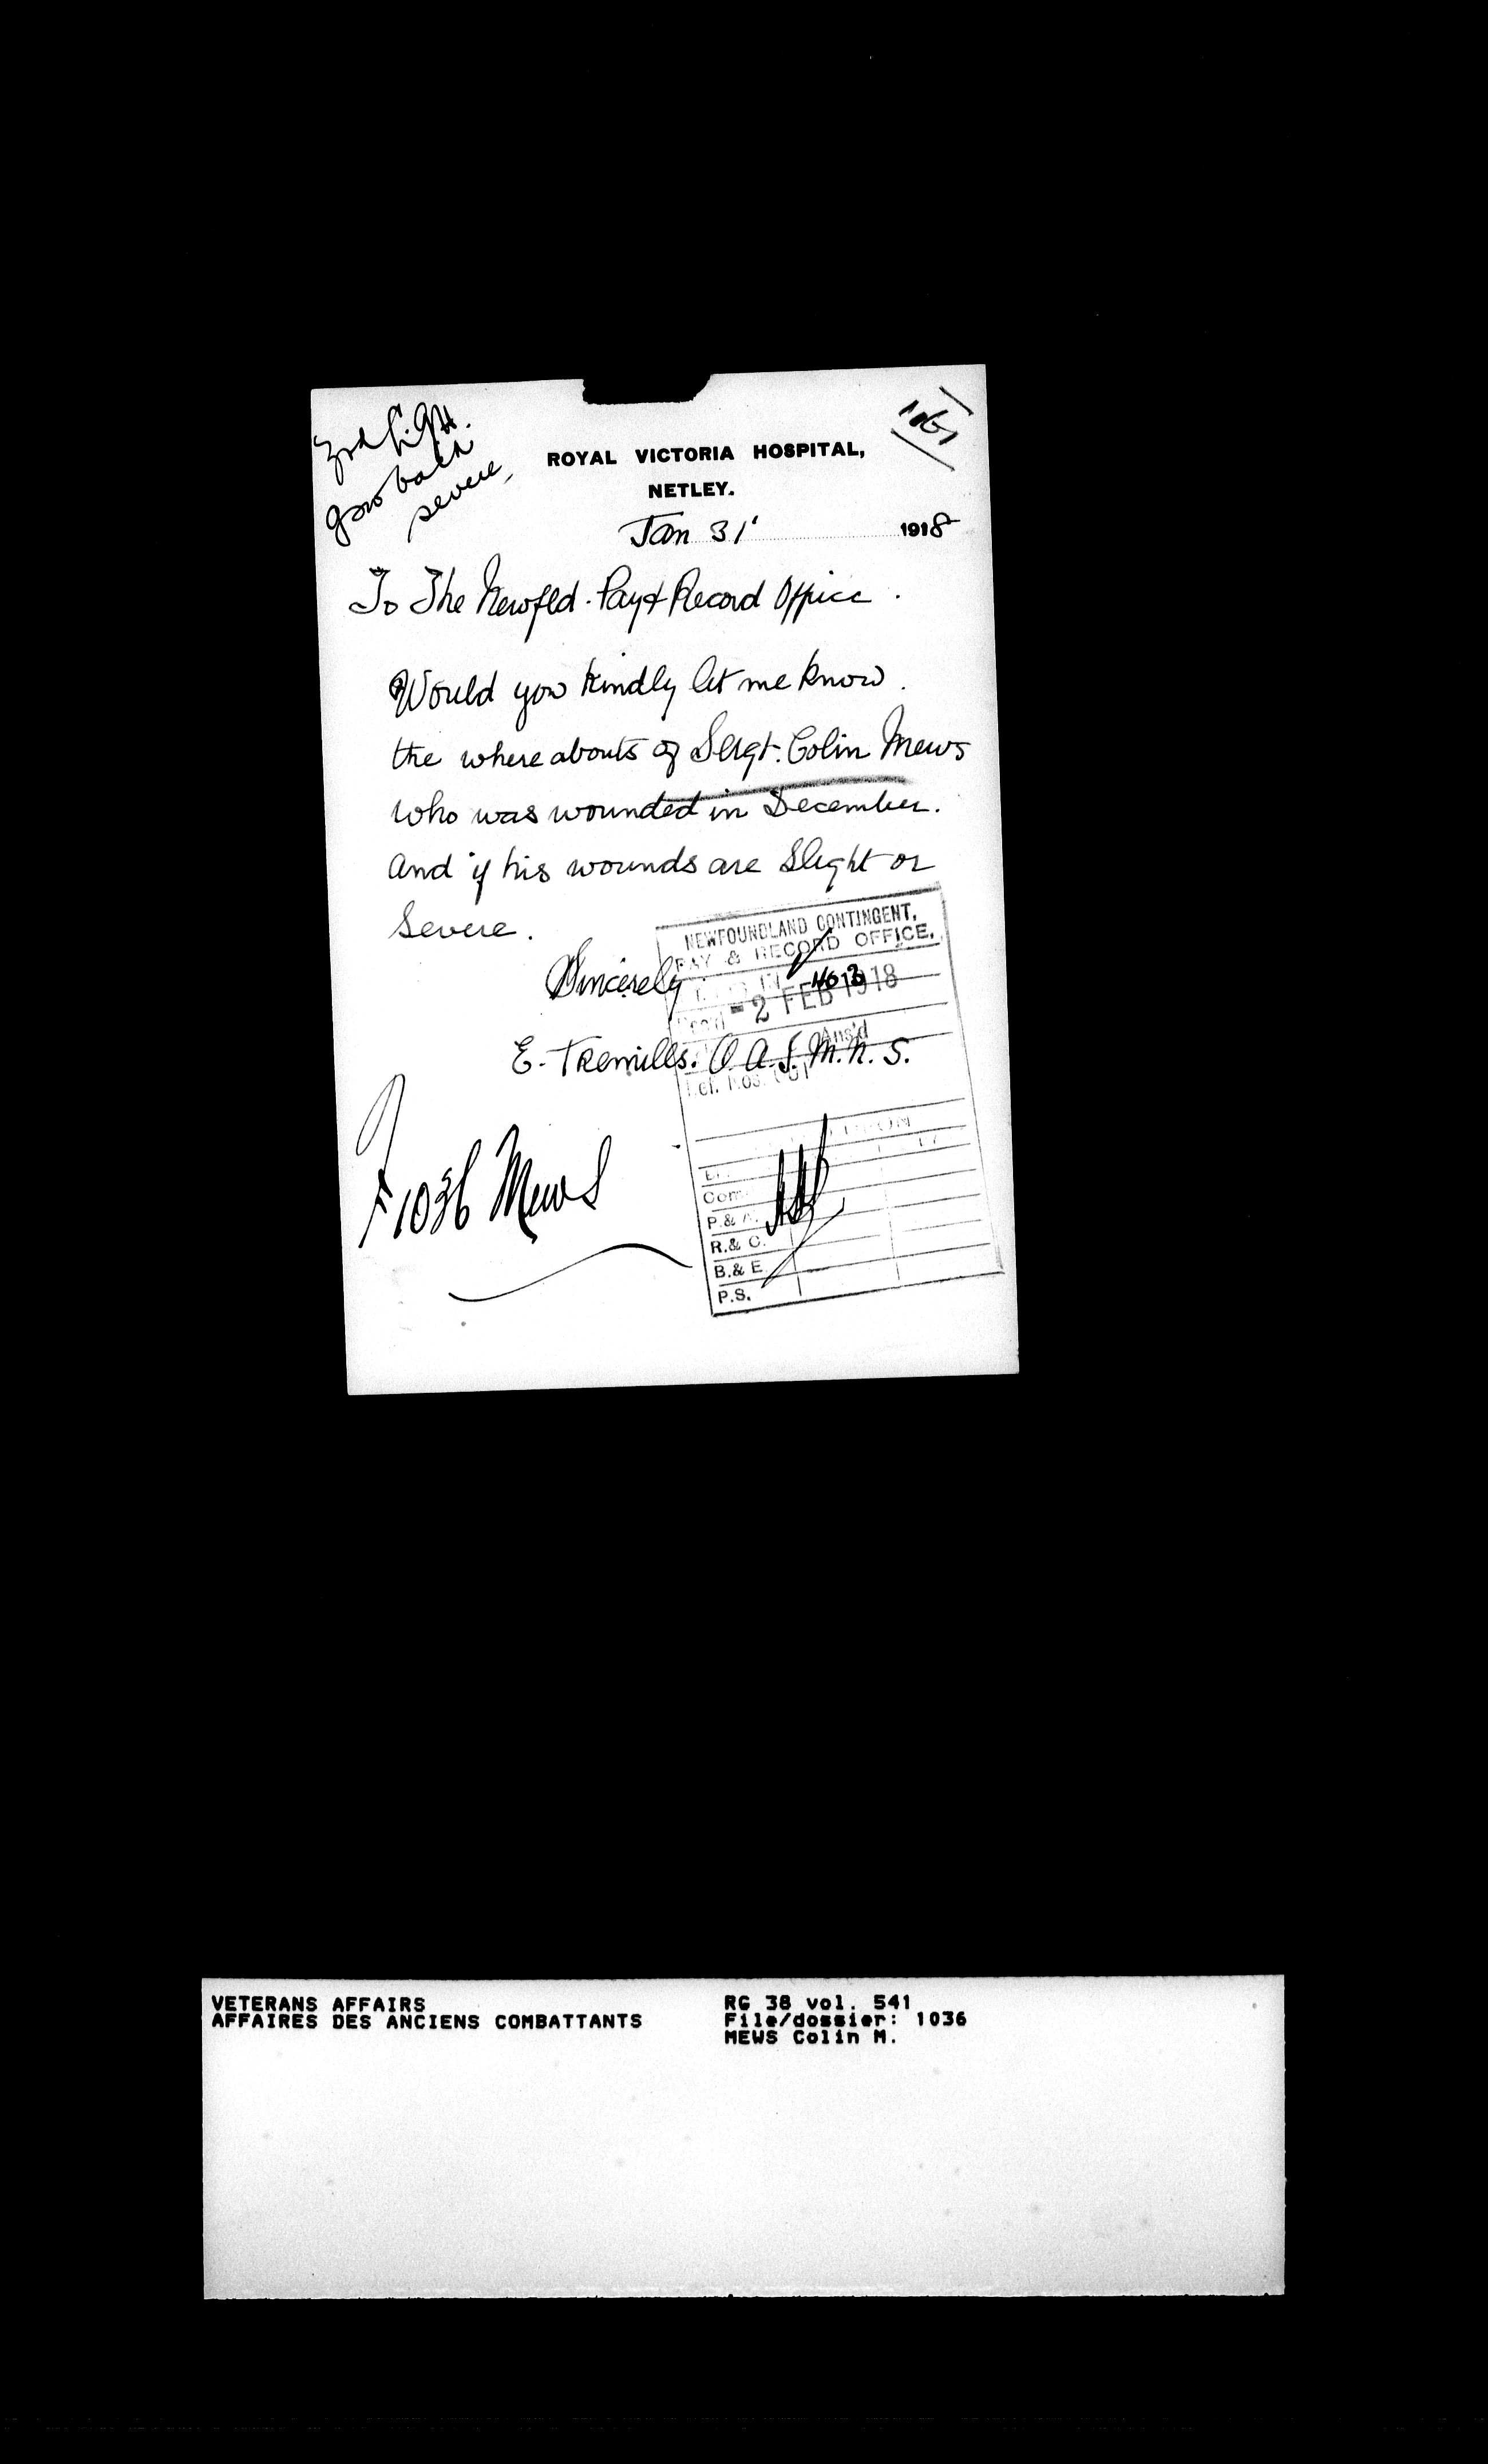 gsw back
severe
ROYAL VICTORIA HOSPITAL,
NETLEY.
Jan 31' 1918
To The Newfld. Pay & Record Office.
Would you kindly let me know.
the where abouts of Sergt. Colin Mews
who was wounded in December.
and if his wounds are Slight or
Severe.
Sincerely
E. Tremills. Q. A. I. M. N. S.
NEWFOUNDLAND CONTINGENT,
PAY & RECORD OFFICE.
Rec'd - 2 FEB 1918
Ans'd
P.& A.
R.& C.
B.& E.
P.S.
F 1036 Mews
VETERANS AFFAIRS
AFFAIRES DES ANCIENS COMBATTANTS
RG 38 vol. 541
File/dossier: 1036
MEWS Colin M.